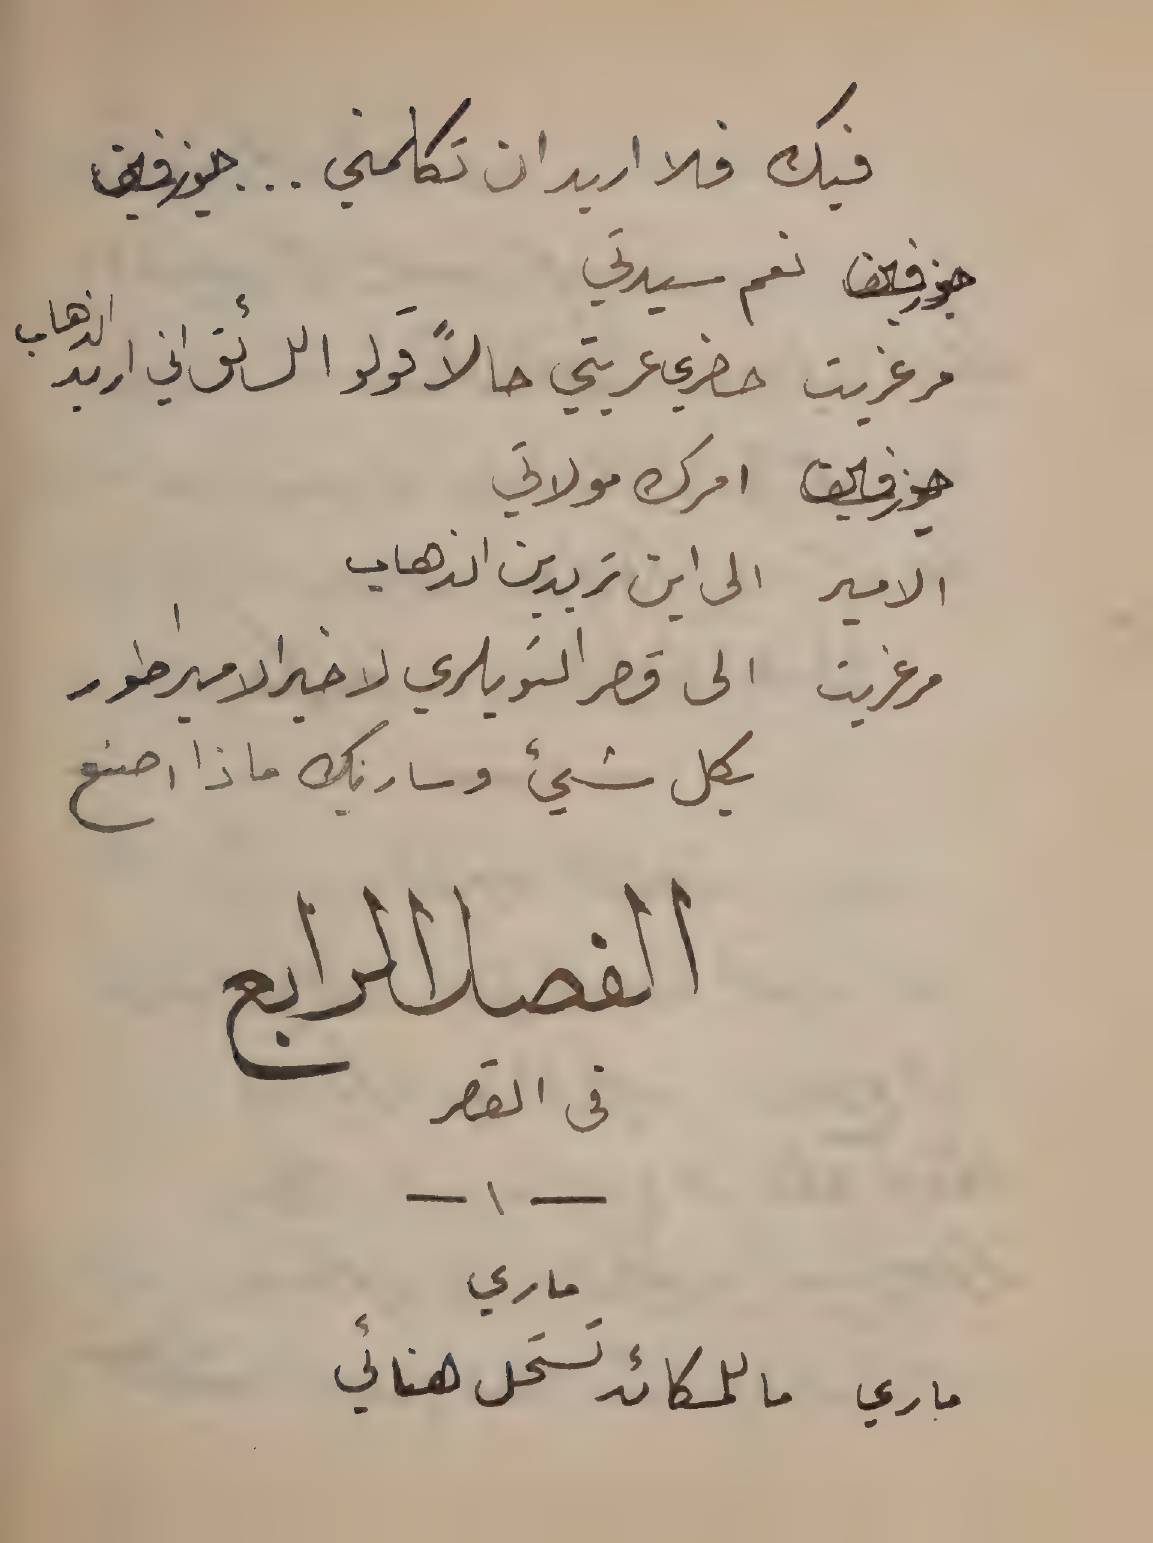 فيك فلا اريد ان تكلمني ... جوزفين
جوزفين نعم سيدتي
مرغريت حضري عربتي حالاً قولو السائق اني اريد الذهاب
جوزفين امرك مولاتي
الامير الى اين تريدين الذهاب
مرغريت الى قصر التويلري لاخبر الامبراطور
بكل شيئ وساريك ماذا اصنع
الفصل الرابع
في القصر
— ١ —
ماري
ماري ما للمكائد تستحل هنائي